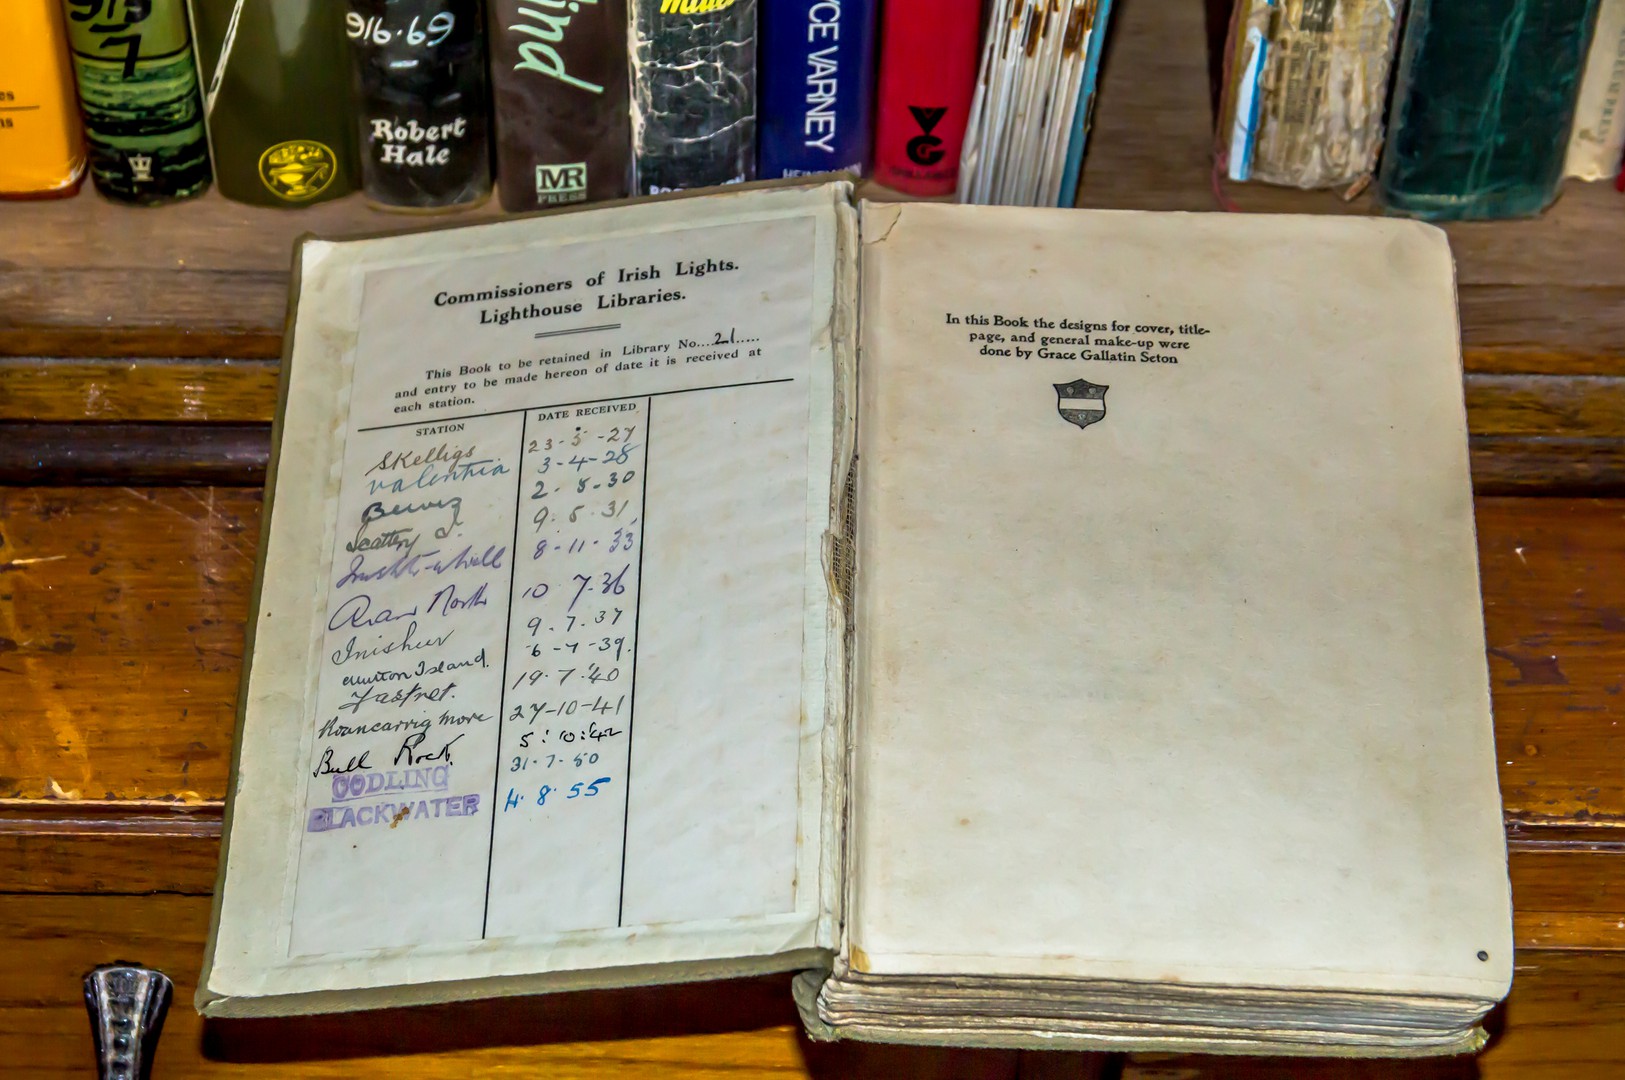 916
7
916.69
Robert
Hale
ind
MR
PRESS
CE VARNEY
VG
Commissioners of Irish Lights.
Lighthouse Libraries.
This Book to be retained in Library No....21.....
and entry to be made hereon of date it is received at
each station.
STATION DATE RECEIVED
Skelligs 23-5-27
Valentia 3-4-28
2. 8-30
Scattery I. 9. 5. 31
8-11-33
Aran North 10 7-36
Inisheer 9.7.37
Island. 6-7-39.
Fastnet. 19.7.40
Roancarrig more 27-10-41
Bull Rock. 5:10:42
CODLING 31-7-50
BLACKWATER 4. 8. 55
In this Book the designs for cover, title-
page, and general make-up were
done by Grace Gallatin Seton